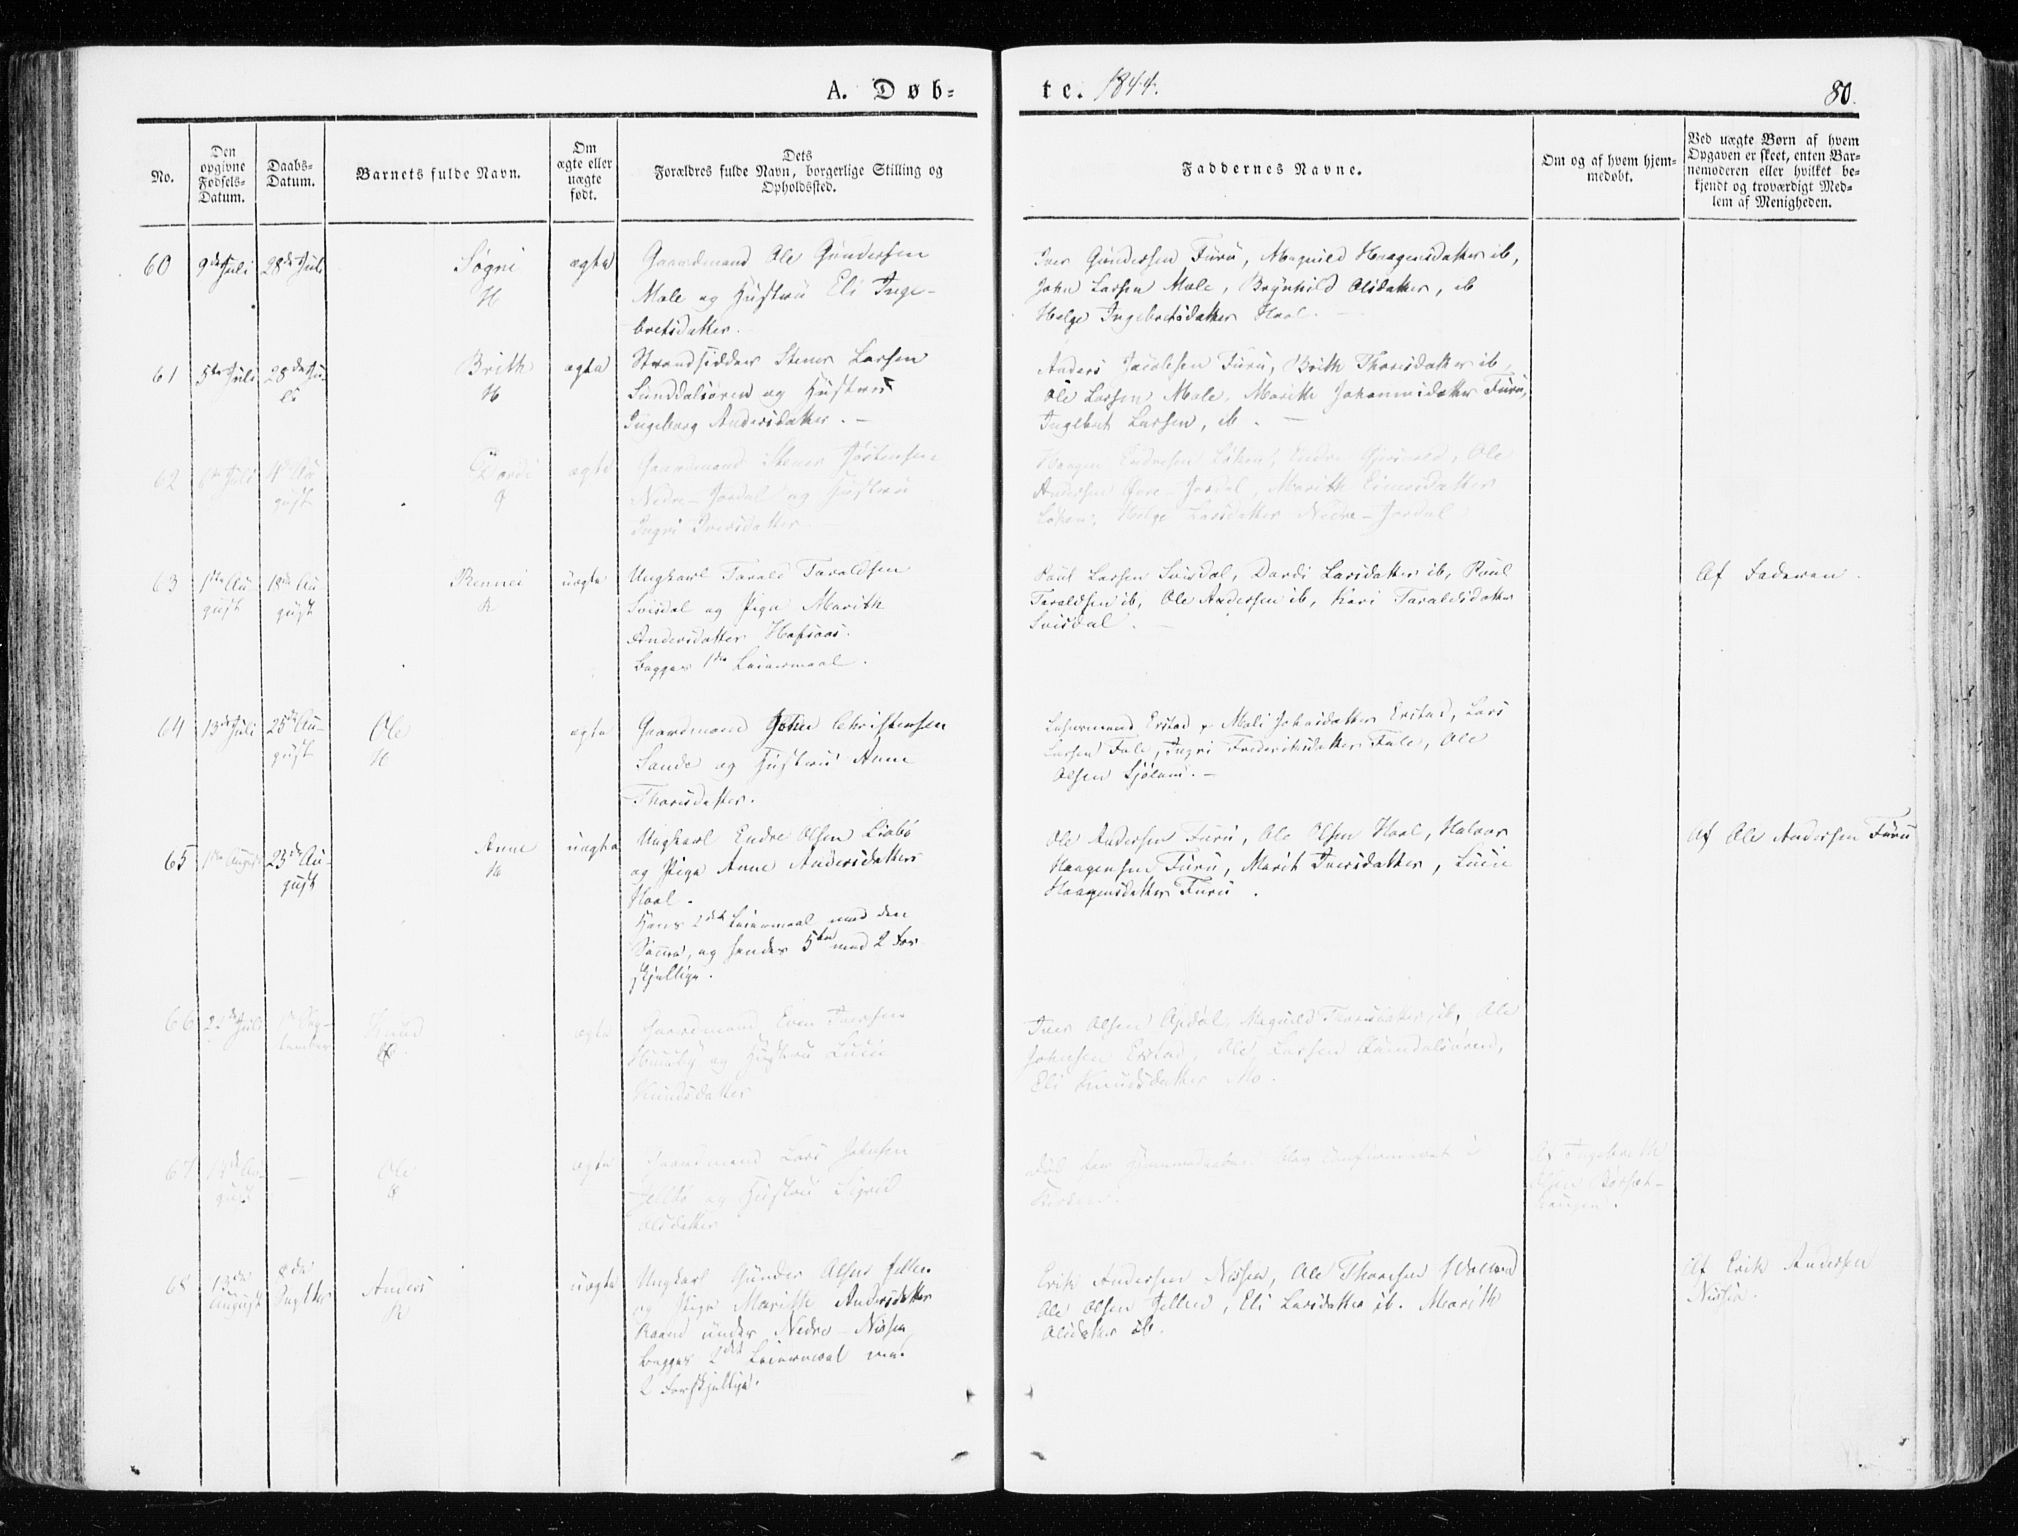 A. Døb-
te. 1844.
80.
No.
Den
opgivne
Fødsels-
Datum.
Daabs-
Datum.
Barnets fulde Navn.
Om
ægte eller
uægte
født.
Dets
Forældres fulde Navn, borgerlige Stilling og
Opholdssted.
Faddernes Navne.
Om og af hvem hjem-
medøbt.
Ved uægte Børn af hvem
Opgaven er skeet, enten Bar-
nemoderen eller hvilket be-
kjendt og troværdigt Med-
lem af Menigheden.
60
9de Juli
28de Juli
Søgni
H
ægte
Gaardmand Ole Gundersen
Male og Hustru Eli Inge-
bretsdatter.
Iver Gundersen Furu, Magnild Haagensdatter ib,
John Larsen Male, Brynhild Olsdatter, ib
Helge Ingebretsdatter Hoel. —
61
5te Juli
28de Ju-
li
Brith
H
ægte
Strandsidder Stener Larsen
Sunddalsøren og Hustru
Ingeborg Andersdatter. —
Anders Jacobsen Furu, Brith Thoresdatter ib,
Ole Larsen Male, Marith Johannesdatter Furu,
Ingebret Larsen, ib. —
62
6te Juli
4de Au-
gust
Dordi
ægte
Gaardmand Stener Jostensen
Nedre-Jordal og Hustru
Ingri Iversdatter
Haagen Endresen Løken, Endre Gjersvold, Ole
Andersen Øvre-Jordal, Marith Einersdatter
Løken, Helge Larsdatter Nedre-Jordal
63
1ste Au-
gust
18de Au-
gust
Rennei
R
uægte
Ungkarl Tarald Taraldsen
Svisdal og Pige Marith
Andersdatter Hafsaas.
Begges 1ste Leiermaal.
Poul Larsen Svisdal, Dordi Larsdatter ib, Poul
Taraldsen ib, Ole Andersen ib, Kari Taraldsdatter
Svisdal. —
Af Faderen.
64
13de Juli
25de Au-
gust
Ole
H
ægte
Gaardmand John Christensen
Sande og Hustru Anne
Thoresdatter.
Lehnsmand Erstad, Mali Johnsdatter Erstad, Lars
Larsen Fale, Ingri Frederiksdatter Fale, Ole
Olsen Sjølund. —
65
1ste August
25de Au-
gust
Anne
H
uægte
Ungkarl Endre Olsen Liabø
og Pige Anne Andersdatter
Hoel.
Hans 2det Leiermaal med den
Samme, og hendes 5te med 2 For-
skjellige.
Ole Andersen Furu, Ole Olsen Hoel, Halvor
Haagensen Furu, Marit Iversdatter, Lucie
Haagensdatter Furu.
Af Ole Andersen Furu
66
22de Juli
1ste Sep-
tember
Knud
ægte
Gaardmand Even Iversen
og Hustru Lucie
Knudsdatter
Iver Olsen Opdøl, Magnild Thoresdatter ib, Ole
Johnsen Erstad, Ole Larsen Sunndalsøren,
Eli Knudsdatter Mo.
67
Au-
gust
—
Ole
ægte
Gaardmand Lars Johnsen
Jelbø og Hustru Sigrid
Olsdatter
Død før Hjemmedaaben blev confirmeret i
Kirken.
Af Ingebreth
Olsen
68
13de
August
8de
Septbr
Anders
R
uægte
Ungkarl Gunder Olsen
og Pige Marith Andersdatter
under Nedre-Nissen
Begges 2det Leiermaal med
2 Forskjellige.
Erik Andersen Nissen, Ole Thoresen
Ole Olsen, Eli Larsdatter ib. Marith
Olsdatter ib.
Af Erik Andersen
Nissen.